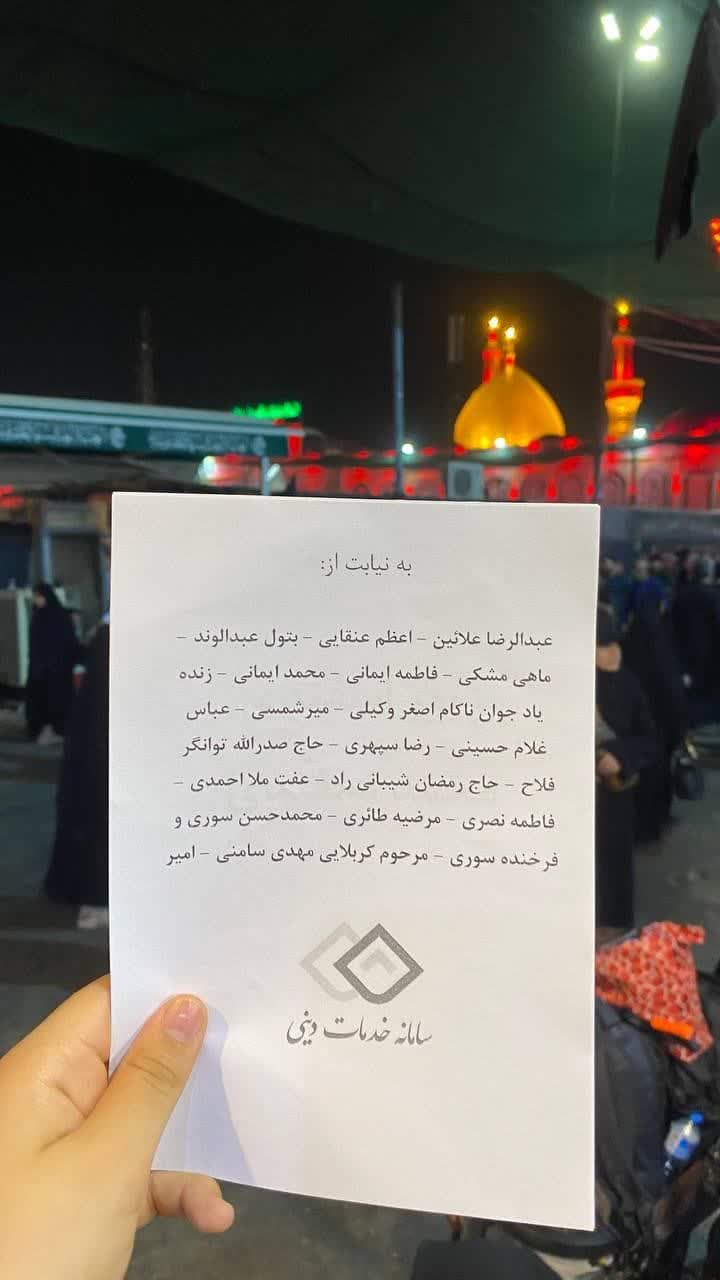 به نیابت از:
عبدالرضا علائین – اعظم عنقایی – بتول عبدالوند –
ماهی مشکی – فاطمه ایمانی – محمد ایمانی – زنده
یاد جوان ناکام اصغر وکیلی – میرشمسی – عباس
غلام حسینی – رضا سپهری – حاج صدرالله توانگر
فلاح – حاج رمضان شیبانی راد – عفت ملا احمدی –
فاطمه نصری – مرضیه طائری – محمدحسن سوری و
فرخنده سوری – مرحوم کربلایی مهدی سامنی – امیر
سامانه خدمات دینی